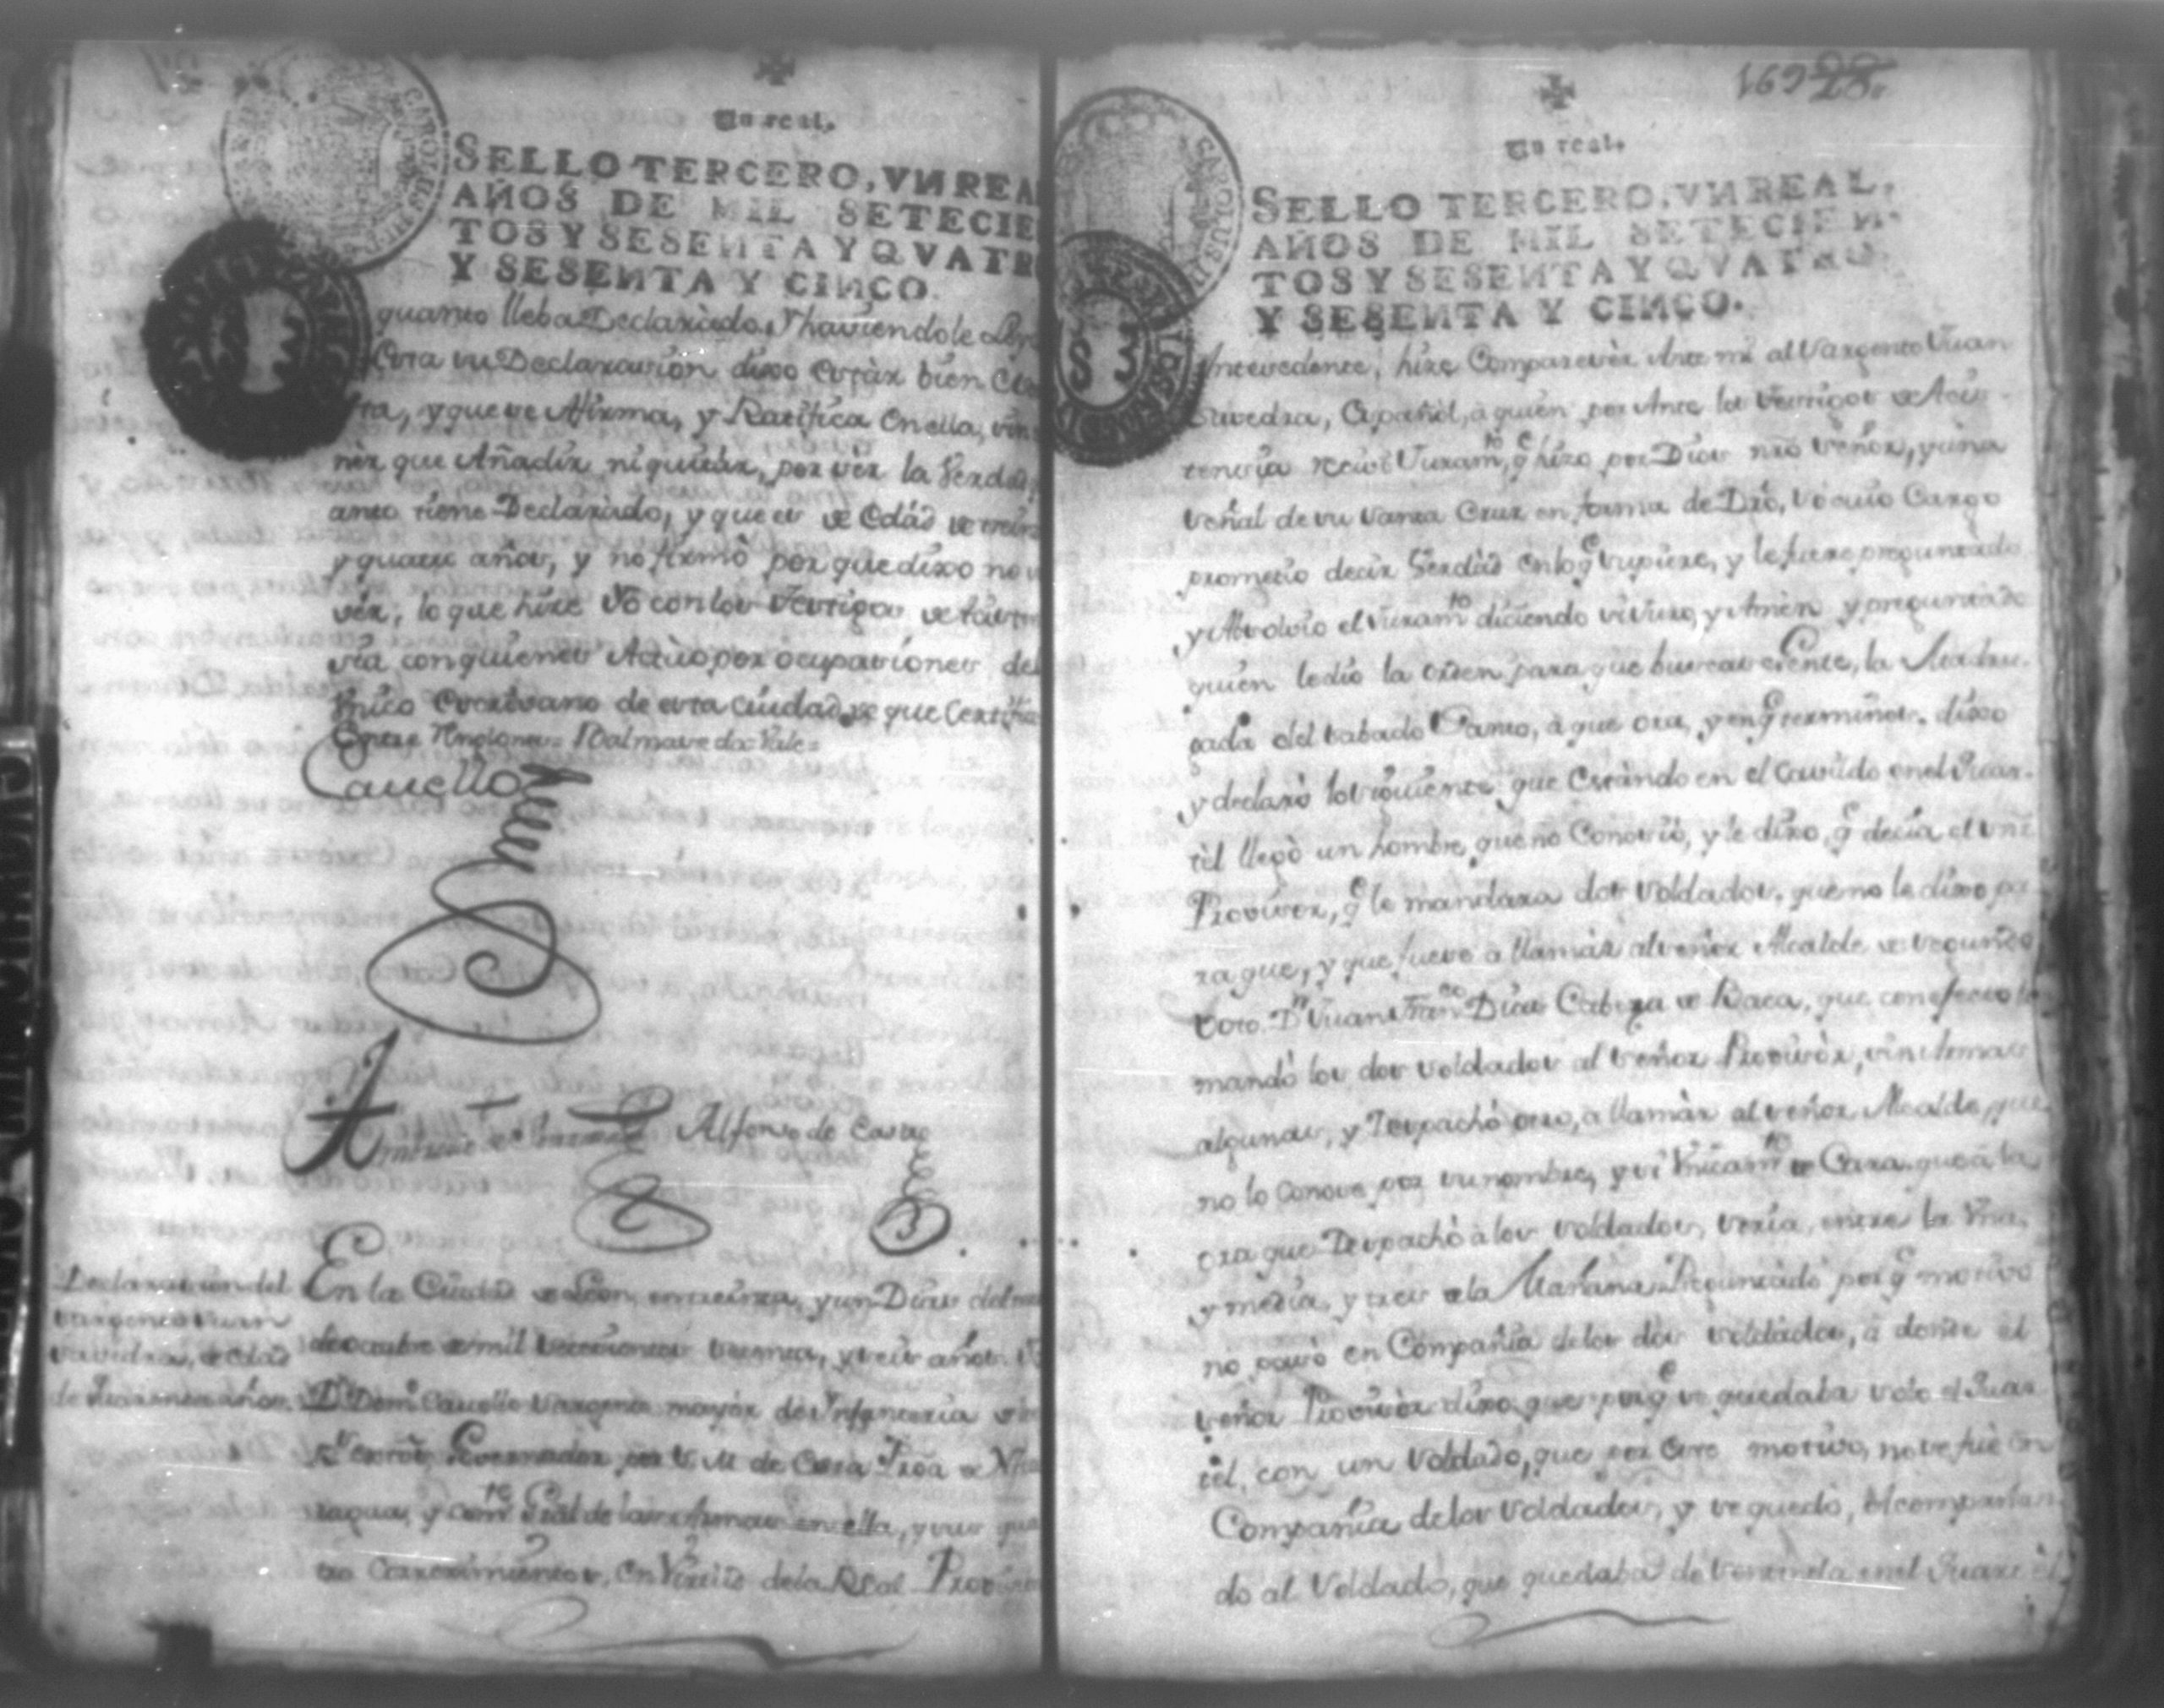 Un real.
SELLO TERCERO, VN REA
AÑOS DE MIL SETECIE
TOS Y SESENTA Y QVATR
Y SESENTA Y CINCO.
quanto lleba Declarado, Yhaviendole
Esta su Declarasion dixo Estàr bien
ta, y que se Afirma, y Ratifica En ella, sin
nèr que Añadir ni quitàr, por sèr la Verdad,
anto tiene Declarado, y que es de Edad de treint
y quatro años, y no firmò por que dixo no
vèr, lo que hize Yo con los testigos de
sia con quienes Actùo por ocupasiones del
Unico Escrivano de esta ciudad de que Certifi
Entre Renglones = Vale =
Cauello
Alfonso de Castro
Declarasion del
sargento Juan
Savedra, de edad
de quarenta años.
En la Ciudad de Leon, en treinta, y un Dias del m
de octubre de mil setecientos sesenta, y seis años. Yo
Dn Domo Cauello Sargento mayor de Ynfanteria de
Rs Governador por S. M. de Esta Proa de Nica
ragua, y comte Gral de las Armas en ella, y sus
En Virtud de la Real Provis
16928.
Un real.
SELLO TERCERO, VN REAL,
AÑOS DE MIL SETECIEN-
TOS Y SESENTA Y QVATRO,
Y SESENTA Y CINCO.
Antesedente, hize Comparesèr Ante mi al Sargento Juan
Savedra, Español, à quien por Ante los testigos de Asis-
tensia resivi Juramto, q hizo por Dios nro Señor, y una
señal de su santa Cruz en forma de Dro, so cuio Cargo
prometio decir Verdad en lo q supiere, y le fuere preguntado
y Absolvio el Juramto diciendo si Juro, y Amèn y preguntado
quien le dio la orden para que buscase Gente, la Madru-
gada del Sabado Santo, à que ora, y en q terminos. dixo
y declarò lo siguiente que Estàndo en el Cavildo en el Quar-
tèl llegò un hombre, que no Conosiò, y le dixo, q decia el Snr
Provisor, q le mandara dos soldados, que no le dixo pa-
ra que, y que fuese à llamàr al señor Alcalde de segundo
Voto Dn Juan Franco Dias Cabeza de Baca, que con efecto
mandò los dos soldados al Señor Provisòr, sin Armas
algunas, y Despachò otro, a llamàr al señor Alcalde, que
no lo conose por su nombre, y si Unicamto de Cara, que à la
ora que Despachò à los soldados, seria, entre la Una,
y media, y tres de la Mañana. Preguntado por q motivo
no pasò en Compañia de los dos soldados, à donde el
señor Provisòr dixo, que por q se quedaba solo el Quar-
tèl, con un Soldado, que por Este motivo, no se fue En
Compañia de los Soldados, y se quedo, Acompañan-
do al Soldado, que quedaba de Sentinela en el Quartèl